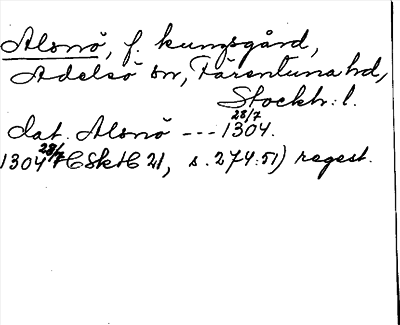 Alsnö, f. kungsgård,
Adelsö sn, Färentuna hd,
Stockh: l.
dat. Alsnö --- 28/7 1304.
1304 28/7 HSH 21, s. 274: 51) regest.